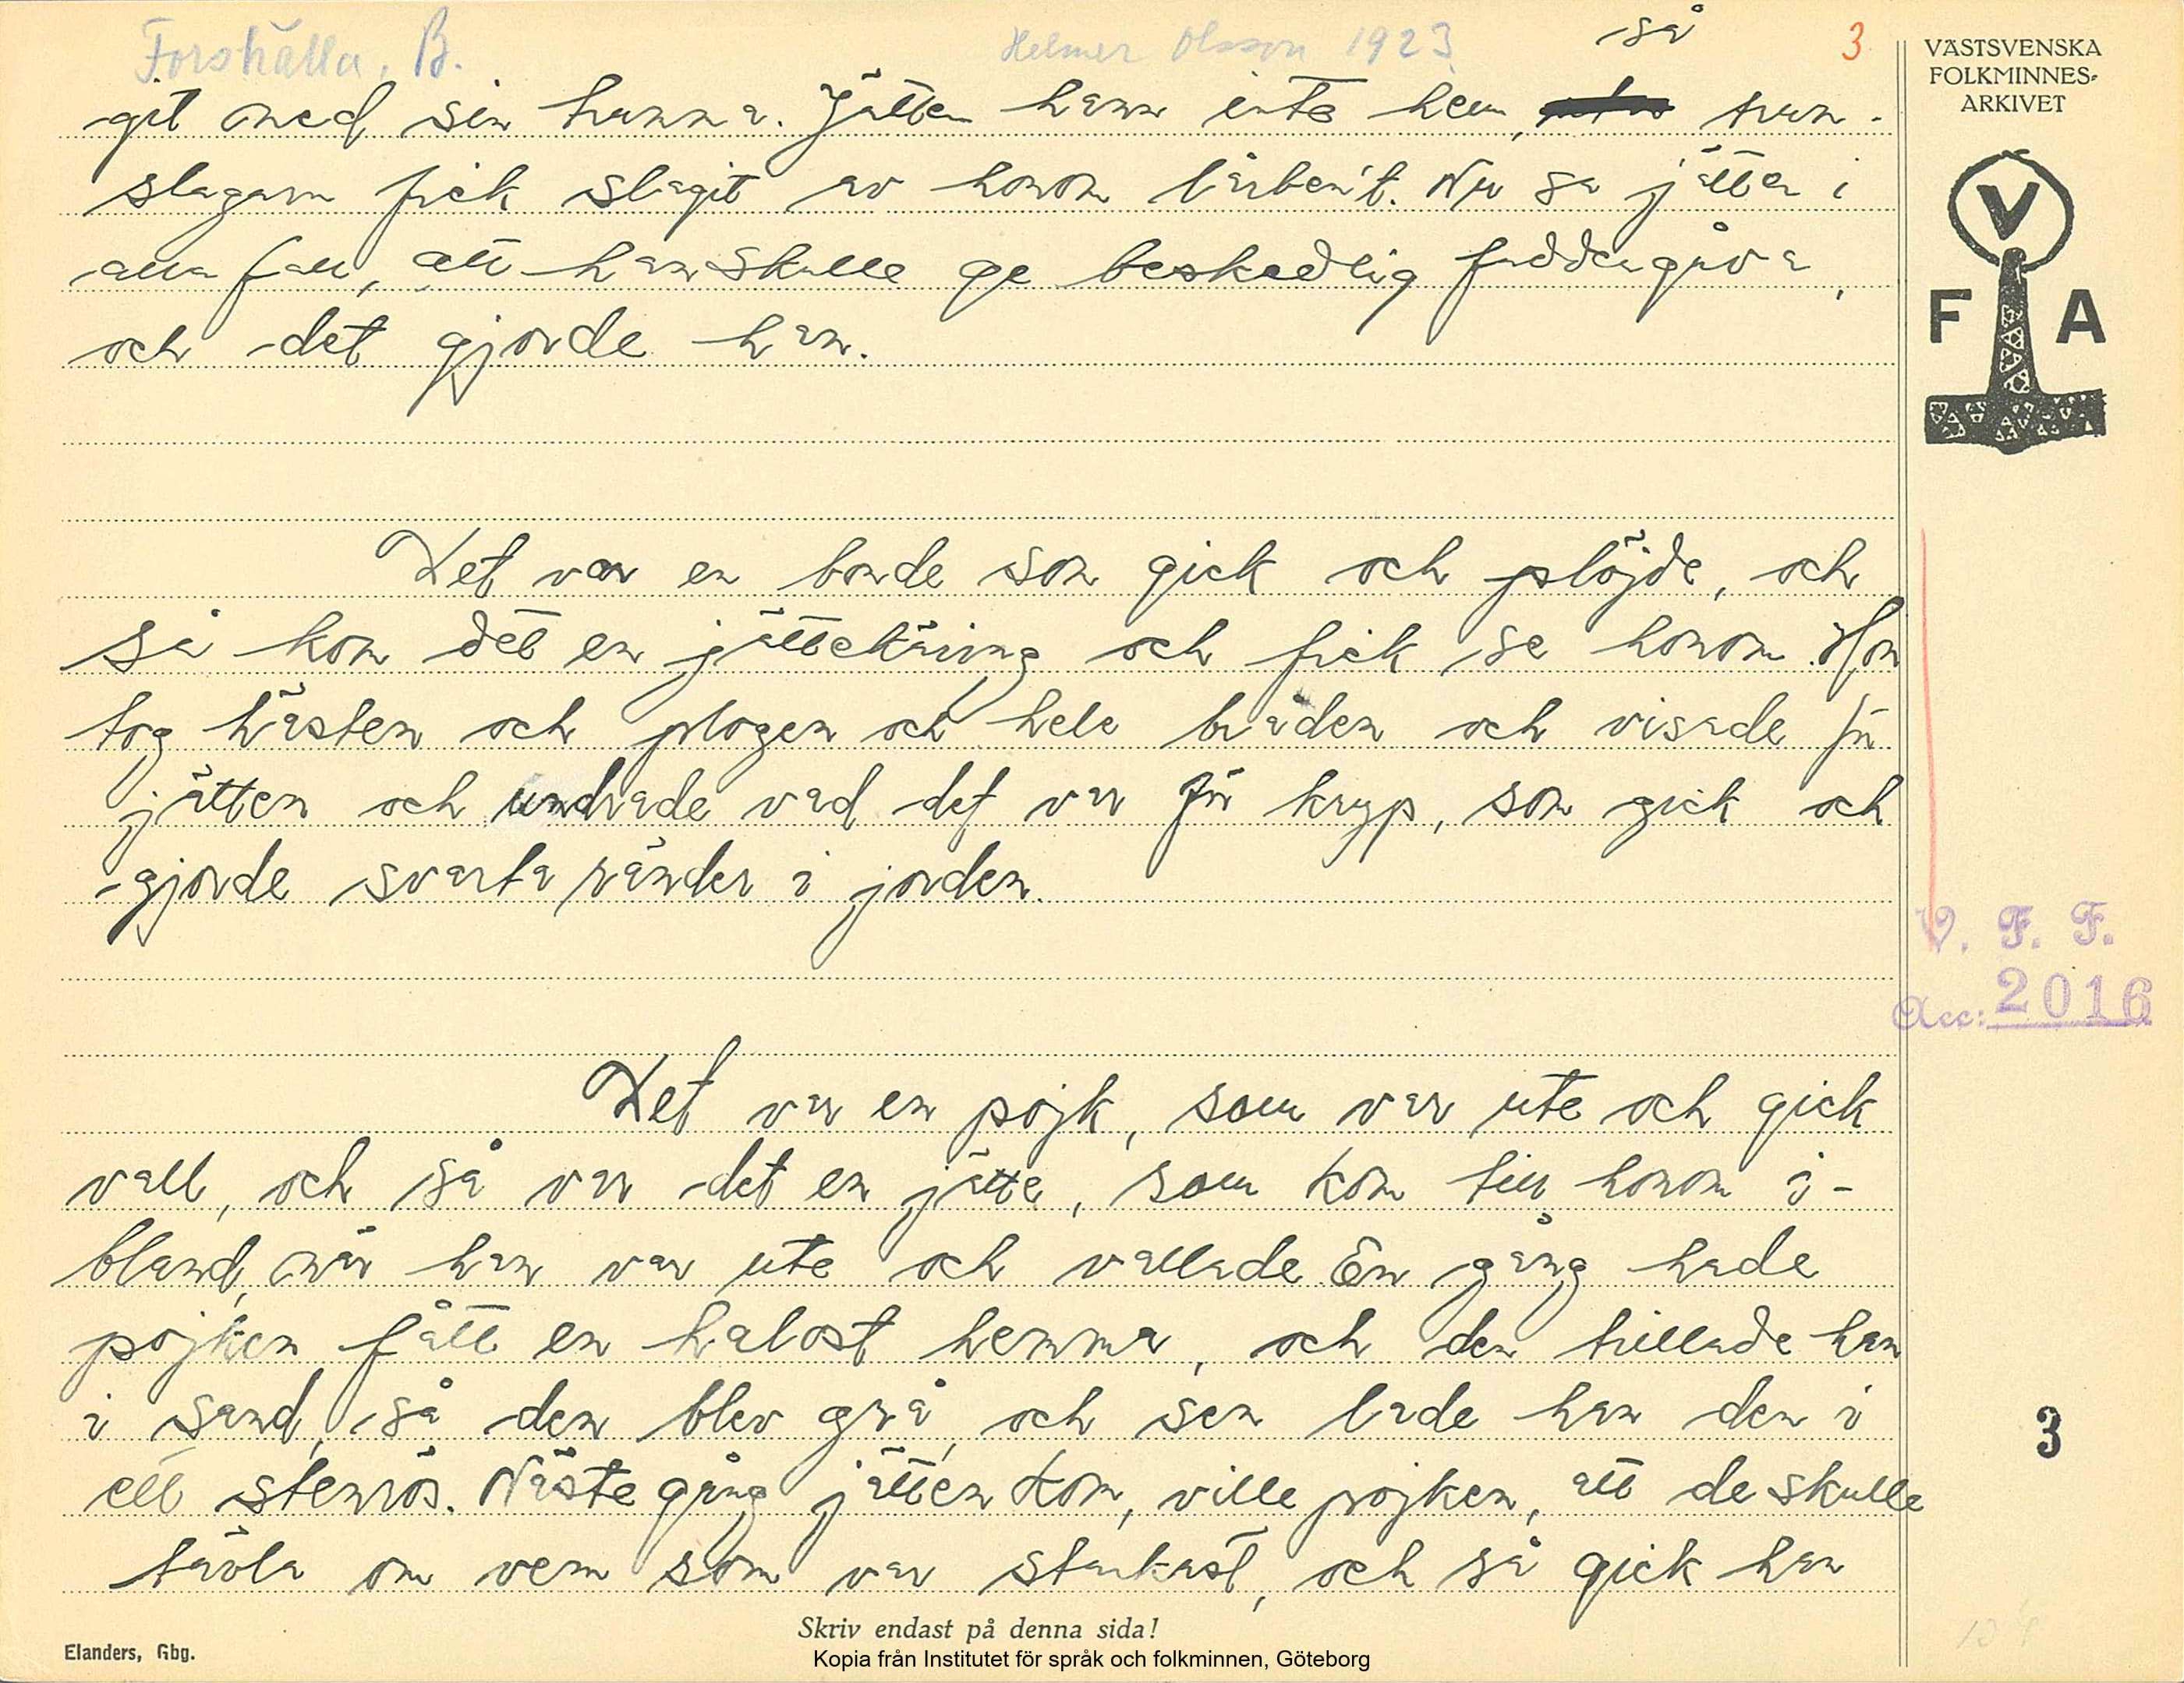 Forshälla, B. Helmer Olsson 1923 3
så
git med sin trumma. Jätten hann inte hem, trum-
slagarn fick slagit av honom lårben't. Nu ga jätten i
alla fall, att han skulle ge beskedlig faddergåva,
och det gjorde han.
Det var en bonde som gick och plöjde, och
så kom det en jättekäring och fick se honom. Hon
tog hästen och plogen och hele bråden och visade för
jätten och undrade vad det var för kryp, som gick och
gjorde svarta ränder i jorden.
Det var en pojk, som var ute och gick
vall, och så var det en jätte, som kom till honom i-
bland, när han var ute och vallade. En gång hade
pojken fått en halost hemma, och den trillade han
i sand, så den blev grå, och sen lade han den i
ett stenrös. Näste gång jätten kom, ville pojken, att de skulle
tävla om vem som var starkast, och så gick han
VÄSTSVENSKA
FOLKMINNES-
ARKIVET
V
F A
V. F. F.
Acc: 2016
3
Skriv endast på denna sida!
Elanders, Gbg.
Kopia från Institutet för språk och folkminnen, Göteborg